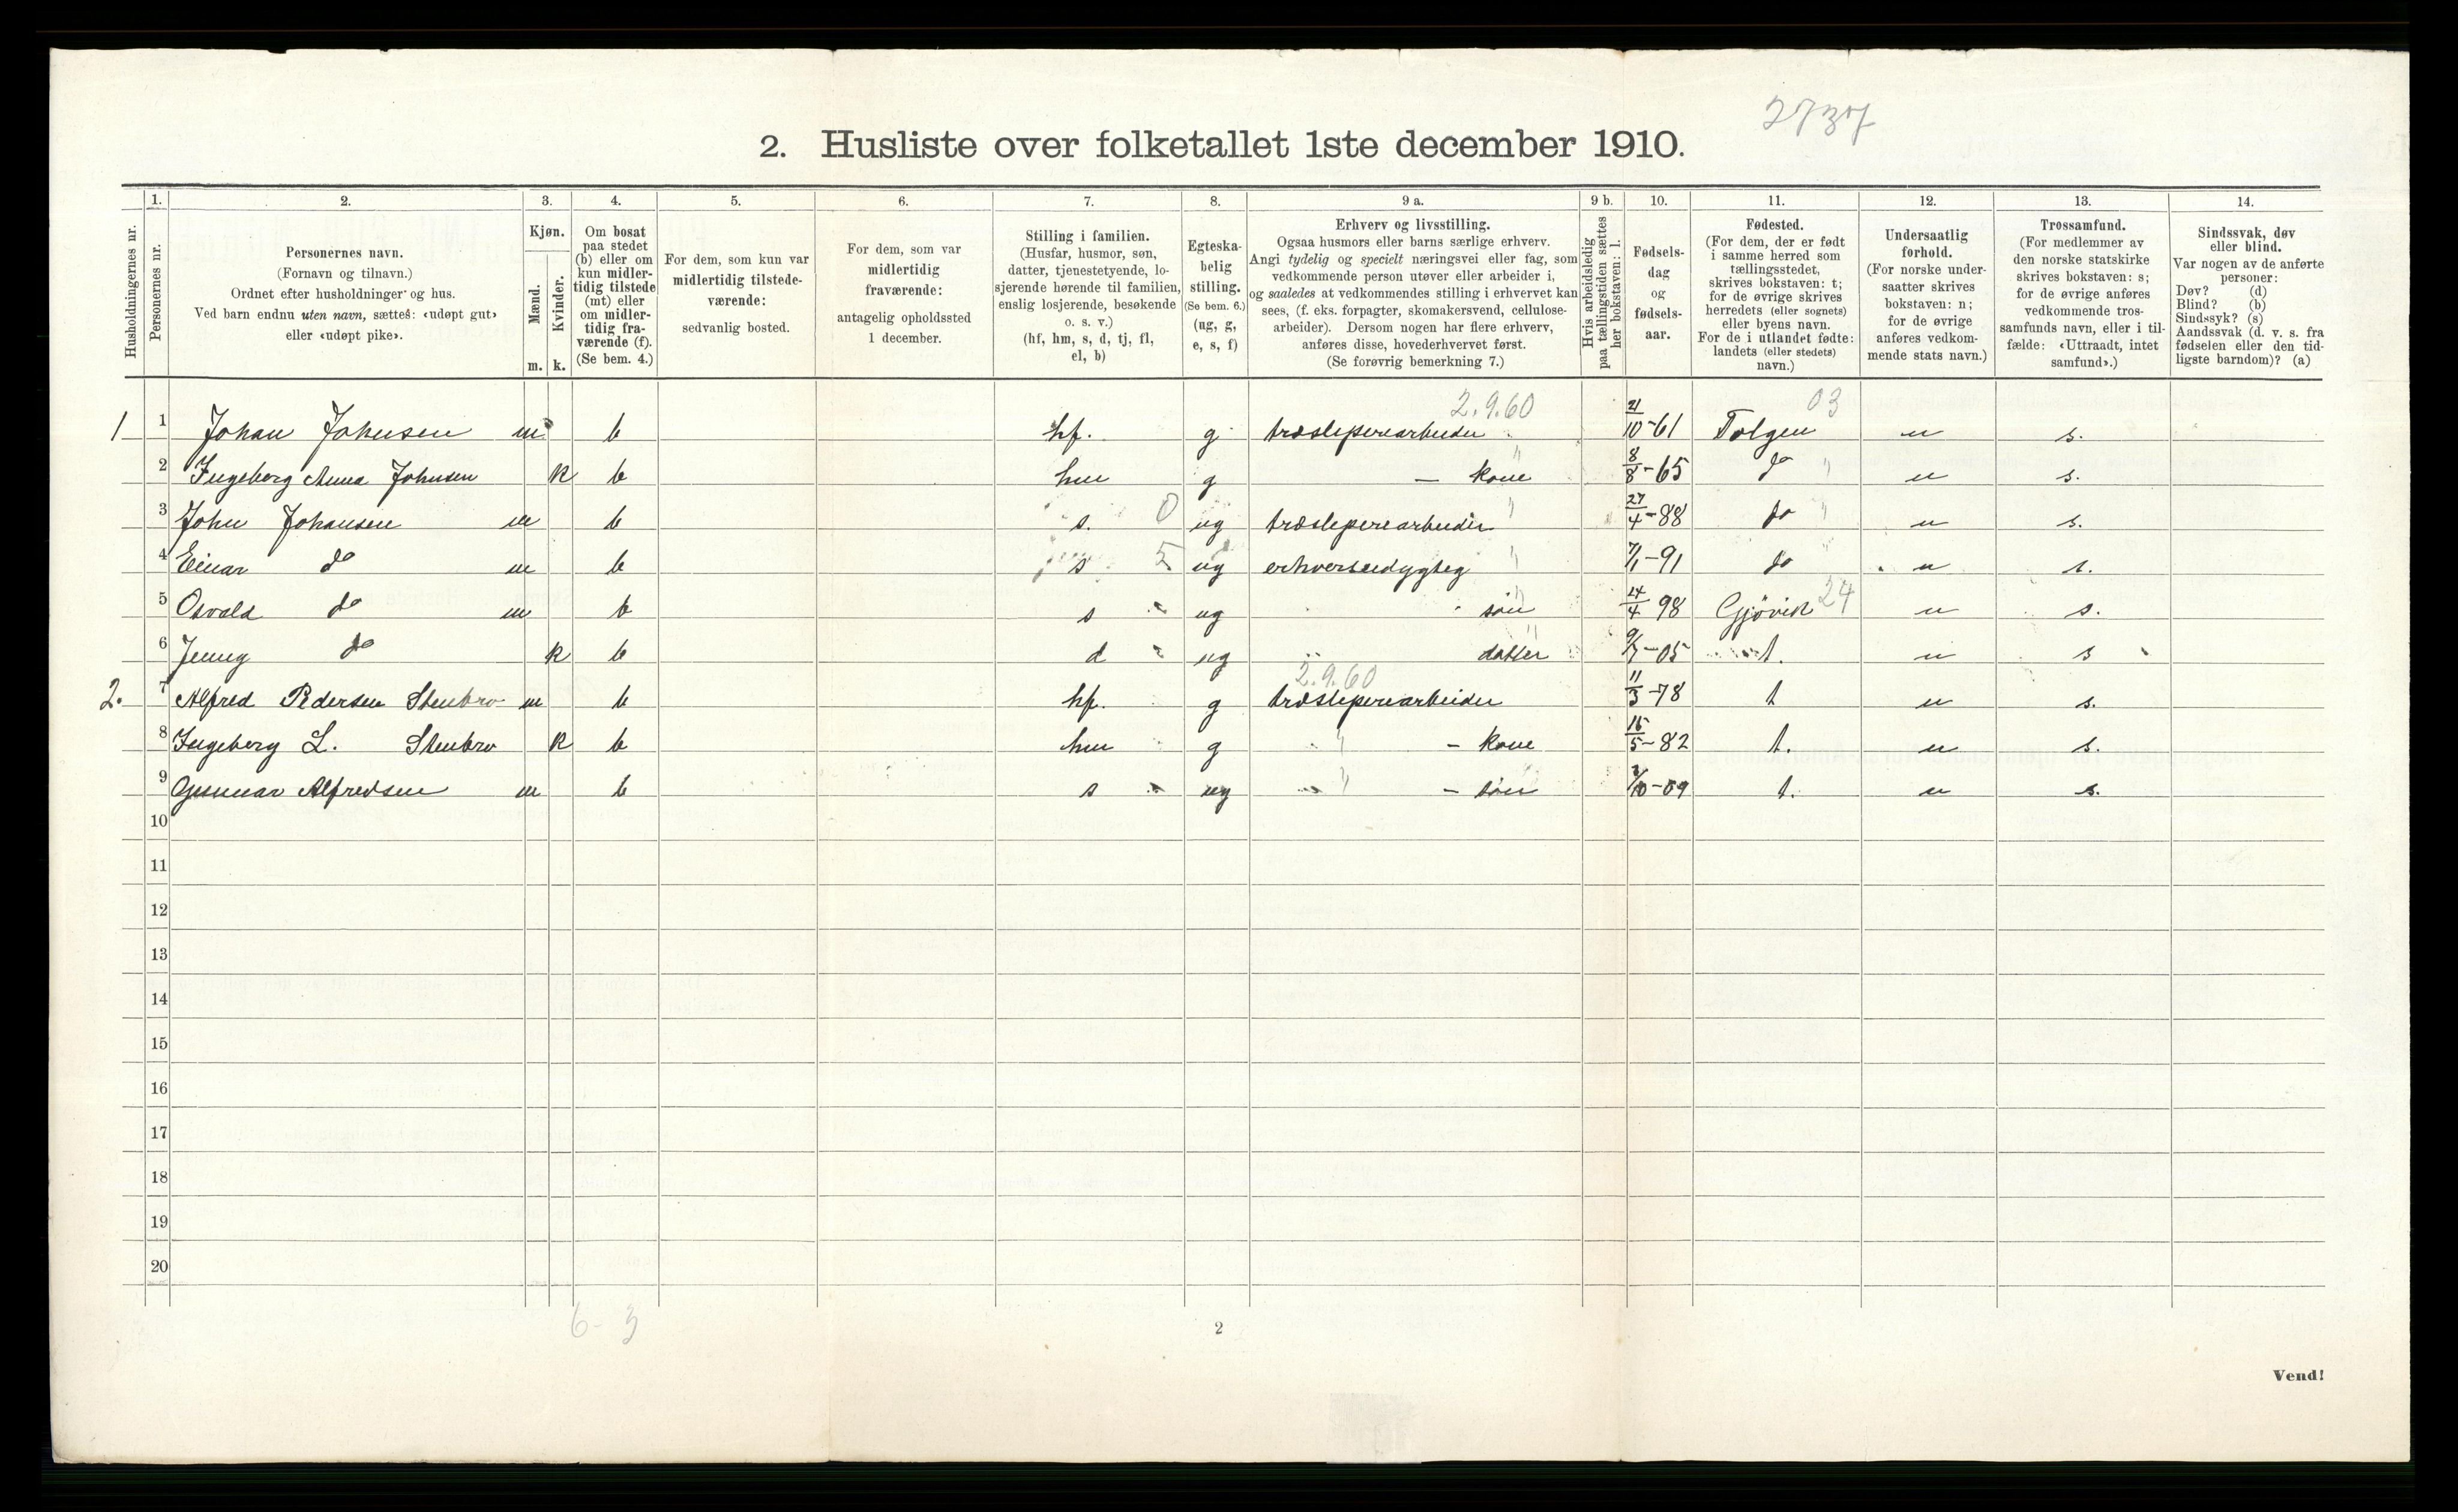 2737
2. Husliste over folketallet 1ste december 1910.
Husholdningernes nr.
1.
Personernes nr.
2.
Personernes navn.
(Fornavn og tilnavn.)
Ordnet efter husholdninger og hus.
Ved barn endnu uten navn, sættes: «udøpt gut»
eller «udøpt pike».
3.
Kjøn.
Mænd.
Kvinder.
m. k.
4.
Om bosat
paa stedet
(b) eller om
kun midler-
tidig tilstede
(mt) eller
om midler-
tidig fra-
værende (f).
(Se bem. 4.)
5.
For dem, som kun var
midlertidig tilstede-
værende:
sedvanlig bosted.
6.
For dem, som var
midlertidig
fraværende:
antagelig opholdssted
1 december.
7.
Stilling i familien.
(Husfar, husmor, søn,
datter, tjenestetyende, lo-
sjerende hørende til familien,
enslig losjerende, besøkende
o. s. v.)
(hf, hm, s, d, tj, fl,
el, b)
8.
Egteska-
belig
stilling.
(Se bem. 6.)
(ug, g,
e, s, f)
9 a.
Erhverv og livsstilling.
Ogsaa husmors eller barns særlige erhverv.
Angi tydelig og specielt næringsvei eller fag, som
vedkommende person utøver eller arbeider i,
og saaledes at vedkommendes stilling i erhvervet kan
sees, (f. eks. forpagter, skomakersvend, cellulose-
arbeider). Dersom nogen har flere erhverv,
anføres disse, hovederhvervet først.
(Se forøvrig bemerkning 7.)
9 b.
Hvis arbeidsledig
paa tællingstiden sættes
her bokstaven: l.
10.
Fødsels-
dag
og
fødsels-
aar.
11.
Fødested.
(For dem, der er født
i samme herred som
tællingsstedet,
skrives bokstaven: t;
for de øvrige skrives
herredets (eller sognets)
eller byens navn.
For de i utlandet fødte:
landets (eller stedets)
navn.)
12.
Undersaatlig
forhold.
(For norske under-
saatter skrives
bokstaven: n;
for de øvrige
anføres vedkom-
mende stats navn.)
13.
Trossamfund.
(For medlemmer av
den norske statskirke
skrives bokstaven: s;
for de øvrige anføres
vedkommende tros-
samfunds navn, eller i til-
fælde: «Uttraadt, intet
samfund».)
14.
Sindssvak, døv
eller blind.
Var nogen av de anførte
personer:
Døv? (d)
Blind? (b)
Sindssyk? (s)
Aandssvak (d. v. s. fra
fødselen eller den tid-
ligste barndom)? (a)
2.9.60 03
1 1 Johan Johnsen m b hf. g træsliperearbeider 21/10-61 Tolgen n s.
2 Ingeborg Anna Johnsen k b hm g — kone " 8/8-65 do " n s.
3 John Johansen m b s. 0 ug træsliperearbeider " 27/4-88 do " n s.
4 Einar do m b s 5 ug erhversudygtig " 7/1-91 do " n s.
5 Osvald do m b s ug søn " 24/4 98 Gjøvik 24 n s.
6 Jenny do k b d ug datter " 9/7-05 t. n s
2.9.60
2. 7 Alfred Pedersen Stenbro m b hf. g træsliperearbeider 11/3-78 t n s.
8 Ingeborg L. Stenbro k b hm g " - kone 15/5-82 t. n s.
9 Gunnar Alfredsen m b s ug " - søn /10-09 t. n s.
10
11
12
13
14
15
16
17
18
19
20
6-3
2
Vend!